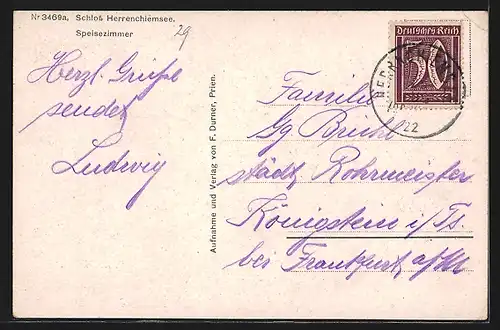 Nr 3469a, Schloß Herrenchiemsee.
Speisezimmer
29
Herzl. Grüße
sendet
Ludwig
Aufnahme und Verlag von F. Durner, Prien.
Deutsches Reich
50
22
Familie
Gg Bruhl
städt Rohrmeister
Königstein i/Ts
bei Frankfurt a/M